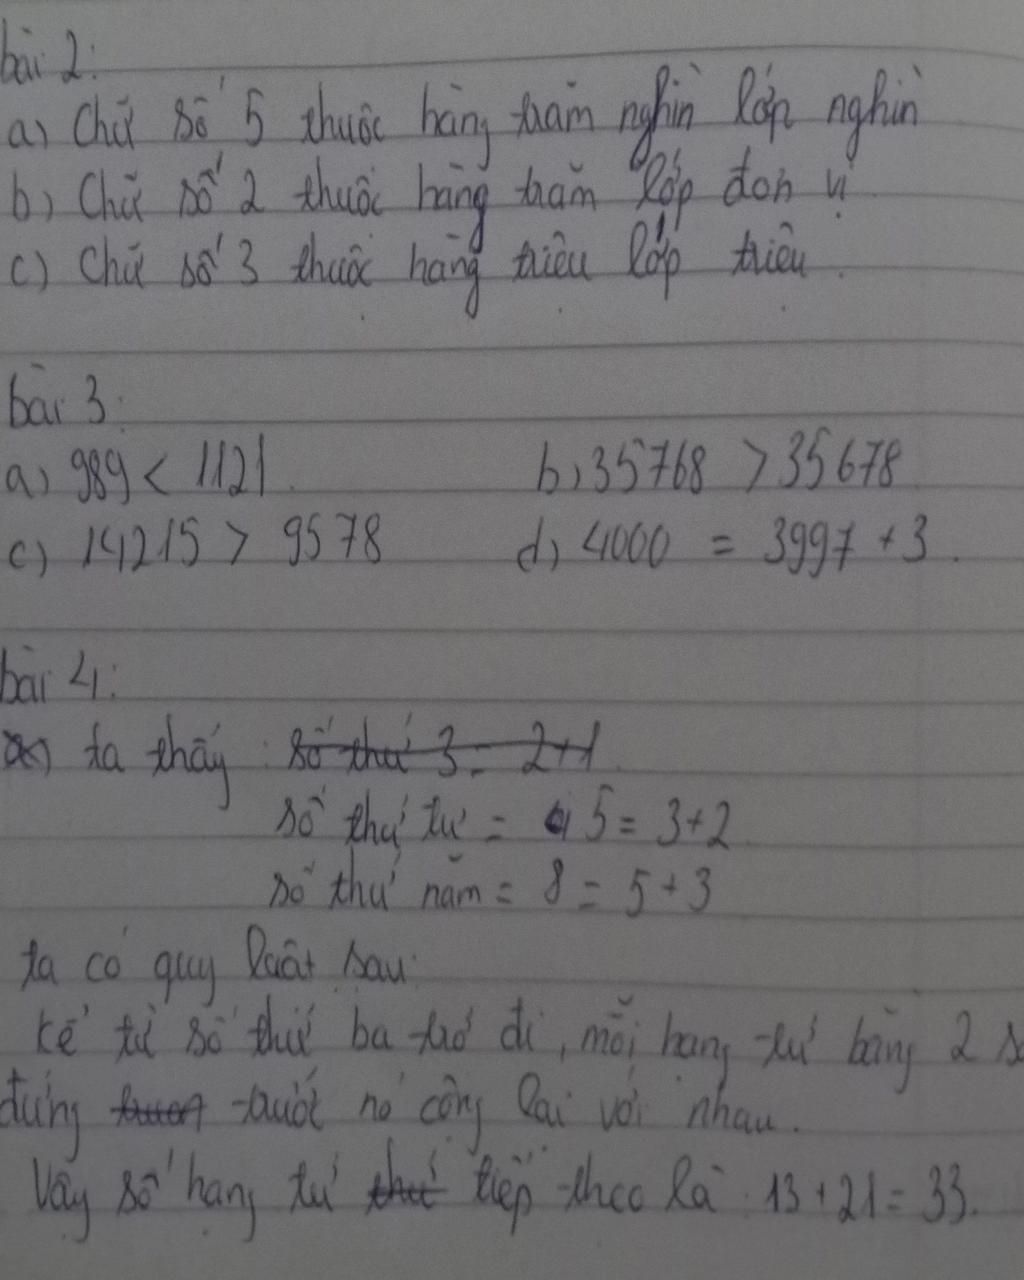 bài 2:
a) Chữ số 5 thuộc hàng trăm nghìn lớp nghìn
b) Chữ số 2 thuộc hàng trăm lớp đơn vị
c) Chữ số 3 thuộc hàng triệu lớp triệu.
bài 3:
a) 989 < 1121. b) 35768 > 35678
c) 14215 > 9578 d) 4000 = 3997 + 3.
bài 4:
ta thấy: số thứ 3 = 2+1
số thứ tư = 5 = 3+2
số thứ năm = 8 = 5 + 3
ta có quy luật sau:
kể từ số thứ ba trở đi, mỗi hạng tử bằng 2 số
đứng trước nó cộng lại với nhau.
Vậy số hạng tử thứ tiếp theo là 13 + 21 = 33.